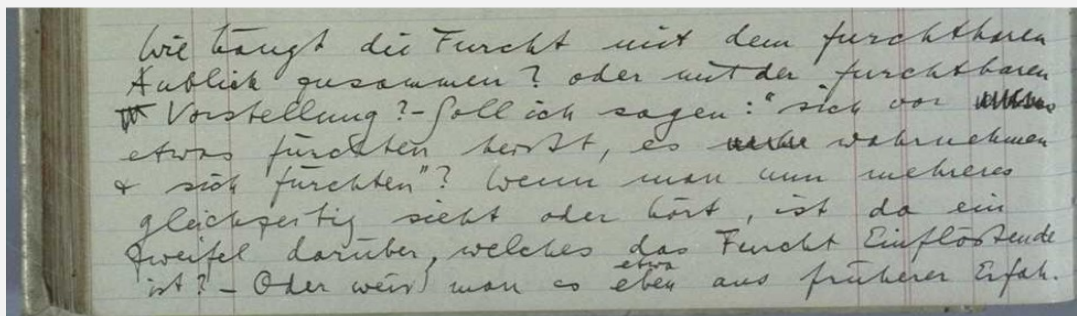 Wie hängt die Furcht mit dem furchtbaren
Anblick zusammen? oder mit der furchtbaren
Vorstellung? – Soll ich sagen: "sich vor
etwas fürchten heißt, es wahrnehmen
& sich fürchten"? Wenn man nun mehreres
gleichzeitig sieht oder hört, ist da ein
Zweifel darüber, welches das Furcht Einflößende
ist? – Oder weiß man es eben etwa aus früherer Erfah-